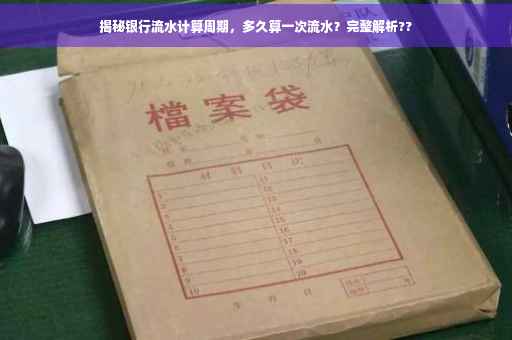 揭秘银行流水计算周期，多久算一次流水？完整解析??
檔案袋
材料目次
1 11
2 12
3 13
4 14
5 15
6 16
7 17
8 18
9 19
10 20
年 月 日